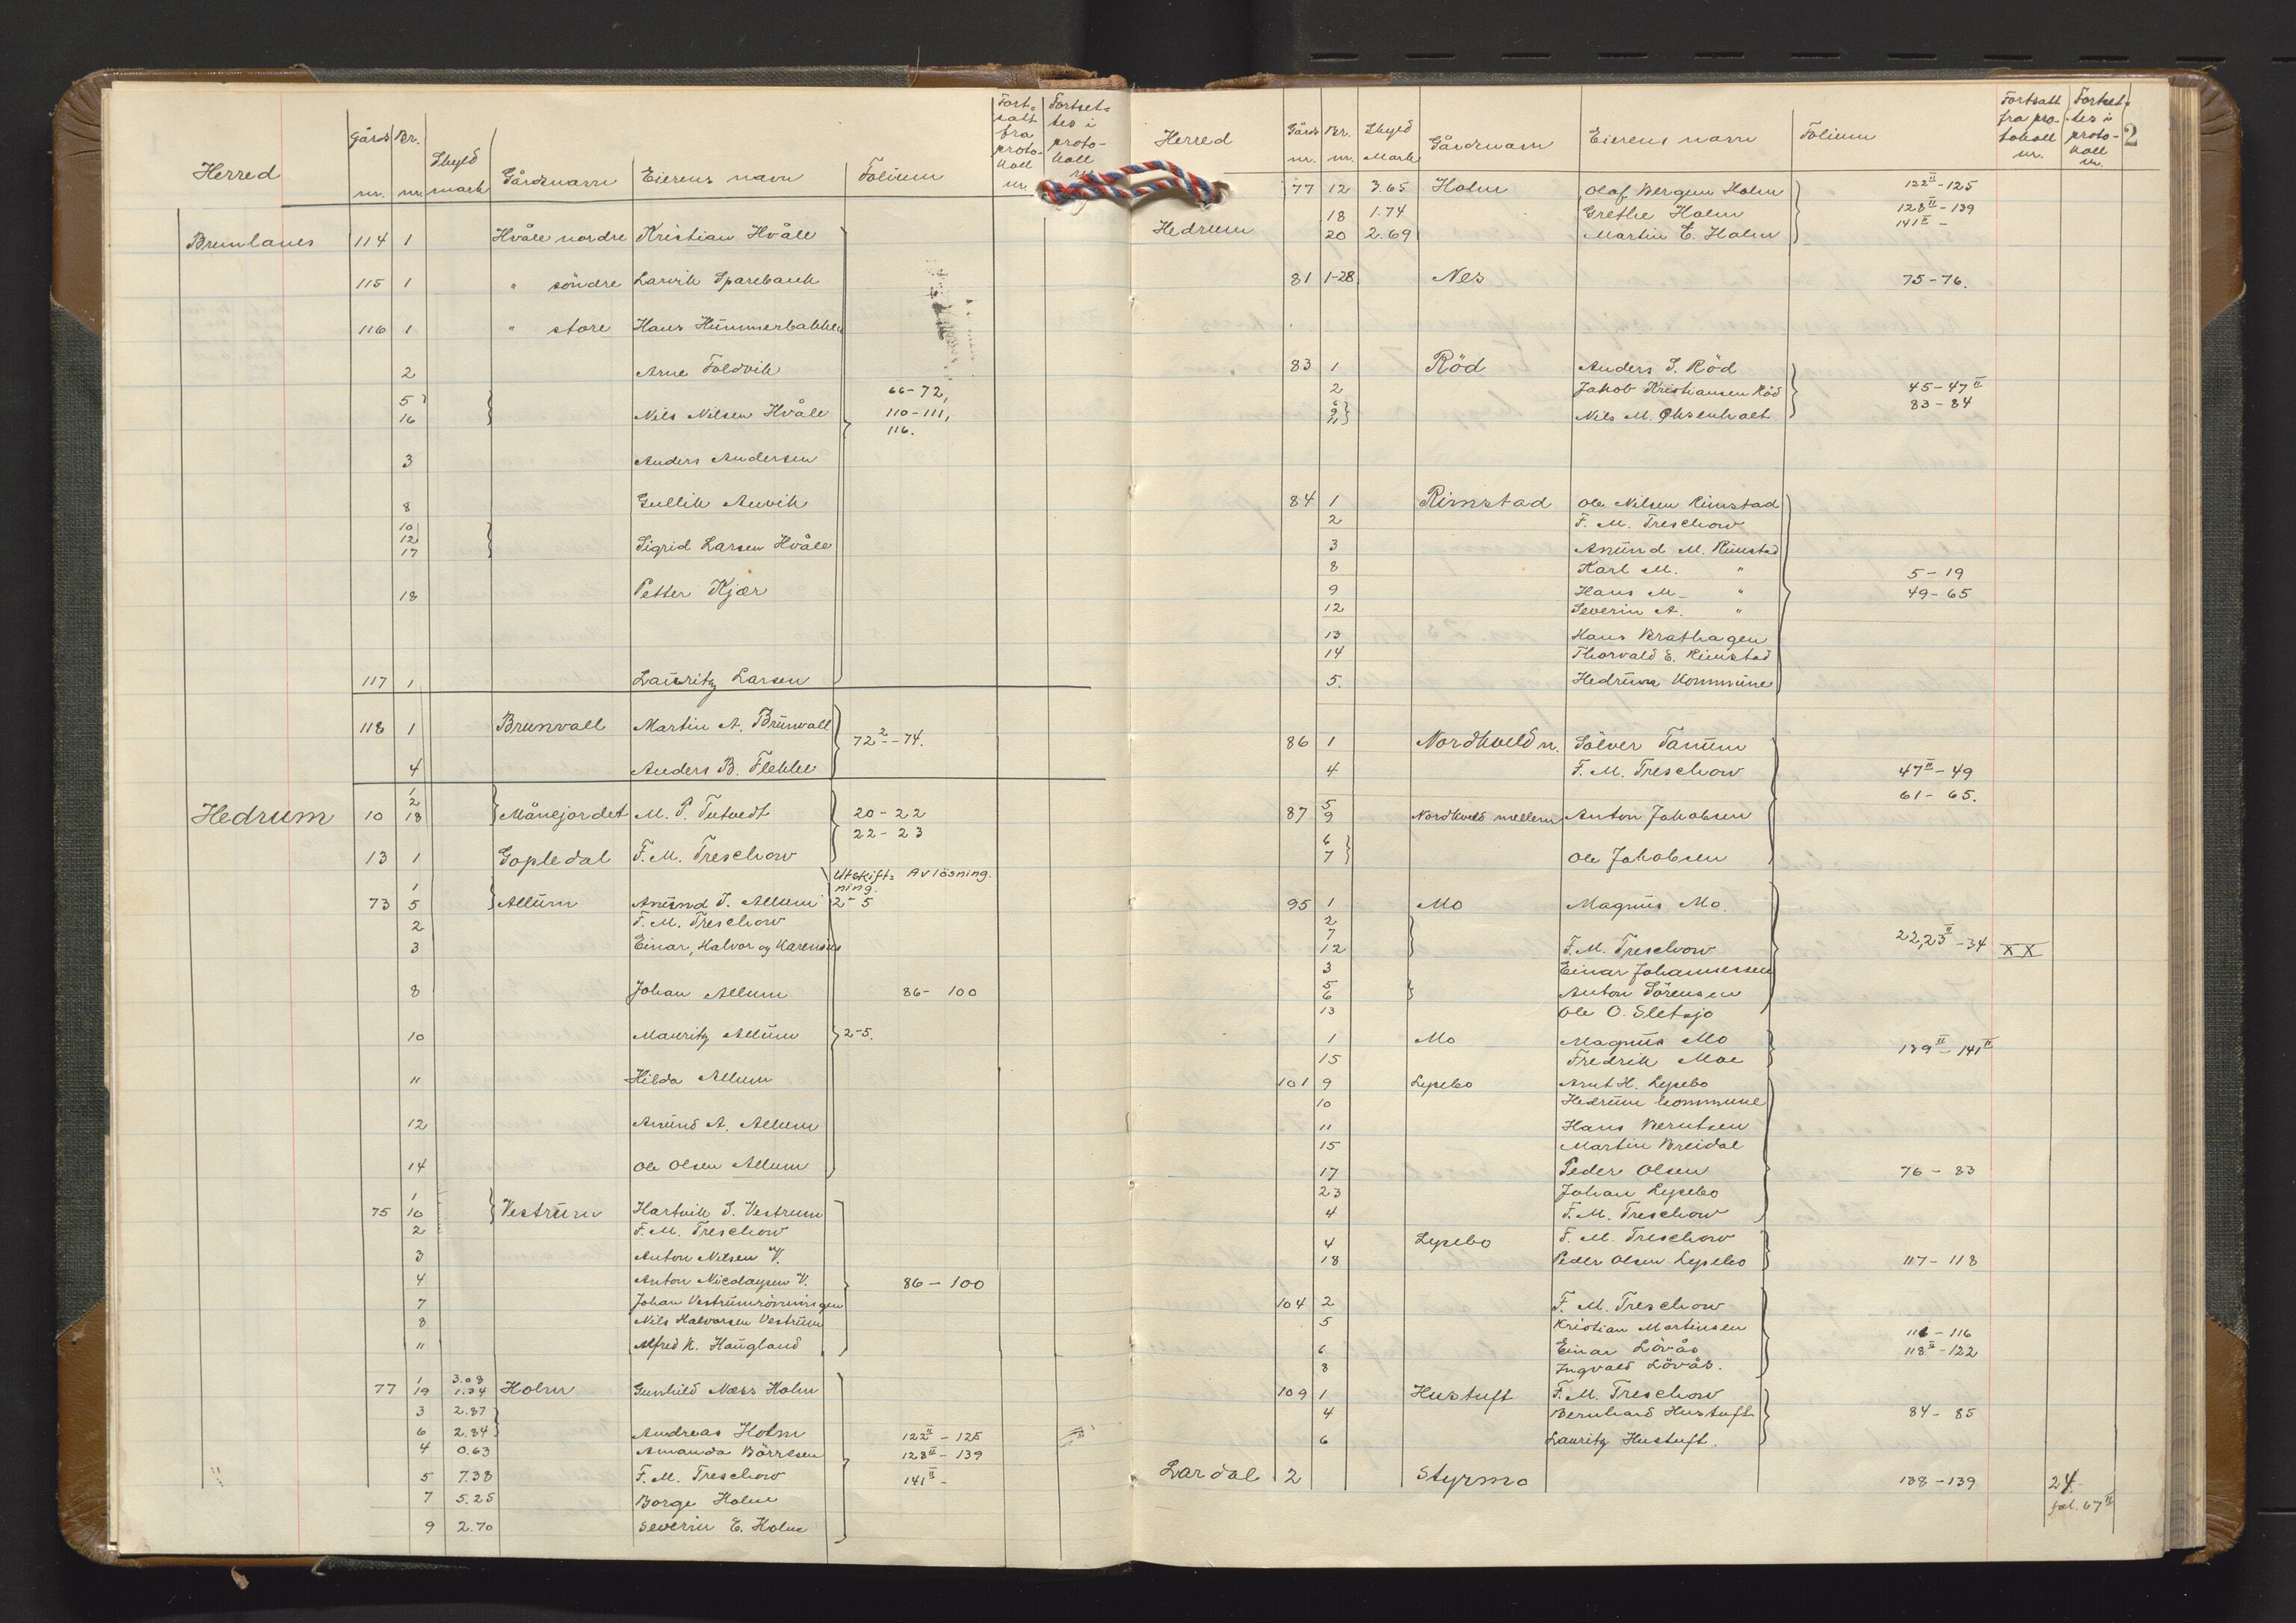 Herred Gårds nr. Br. nr. Skyld mark Gårdsnavn Eierens navn Folium Fort=satt fra proto-koll nr. Fortset=tes i proto-koll nr.
Brunlanes 114 1 Hvåle nordre Kristian Hvåle
115 1 " söndre Larvik Sparebank
116 1 " store Hans Hummerbakken
2 Arne Foldvik
5 66-72,
16 Nils Nilsen Hvåle 110-111,
116.
3 Anders Andersen
8 Gullik Auvik
10
12 Sigrid Larsen Hvåle
17
18 Petter Kjær
117 1 Lauritz Larsen
118 1 Brunvall Martin A. Brunvall
72²-74.
4 Anders B. Flekke
1
2
Hedrum 10 18 Månejordet M. P. Tutvedt 20-22
22-23
13 1 Gopledal F. M. Treschow
Utskift=ning. Avlösning.
1
73 5 Allum Anund I. Allum 2-5
2 F. M. Treschow
3 Einar, Halvor og Karensius
8 Johan Allum 86-100
10 Mauritz Allum 2-5.
11 Hilda Allum
12 Anund A. Allum
14 Ole Olsen Allum
1
75 10 Vestrum Hartvik S. Vestrum
2 F. M. Treschow
3 Anton Nilsen V.
4 Anton Nicolaysen V. 86-100
7 Johan Vestrumrönningen
8 Nils Halvorsen Vestrum
11 Alfred K. Haugland
1 3.08
77 19 1.34 Holm Gunhild Næss Holm
3 2.87
6 2.84 Andreas Holm 122II-125
4 0.63 Amanda Börresen 128II-139
" 5 7.38 F. M. Treschow 141II-
7 5.25 Borge Holm
9 2.70 Severin E. Holm
Herred Gårds nr. Br. nr. Skyld Mark Gårdsnavn Eierens navn Folium Fortsatt fra pro-tokoll nr. Fortset=tes i proto-koll nr. 2
77 12 3.65 Holm Olaf Bergum Holm 122II-125
18 1.74 Grethe Holm 128II-139
Hedrum 20 2.69 Martin E. Holm 141II-
81 1-28 Nes 75-76.
83 1 Röd Anders S. Röd
2 Jakob Kristiansen Röd 45-47II
6 83-84
9 Nils M. Oksenholt
11
84 1 Rimstad Ole Nilsen Rimstad
2 F. M. Treschow
3 Anund M. Rimstad
8 Karl M. " 5-19
9 Hans M- " 49-65
12 Severin A. "
13 Hans Brathagen
14 Thorvald E. Rimstad
5. Hedrum Kommune
86 1 Nordkveld n. Sölver Tanum
4 F. M. Treschow 47II-49
61-65.
5
87 9 Nordkveld mellem Anton Jakobsen
6
7 Ole Jakobsen
95 1 Mo Magnus Mo.
2
7
12 F. M. Treschow 22,23II-34 XX
3 Einar Johannessen
5
6 Anton Sörensen
13 Ole O. Sletsjo
1 Mo Magnus Mo 139II-141II
15 Fredrik Moe
101 9 Lysebo Arnt H. Lysebo
10 Hedrum kommune
11 Hans Berntsen
15 Martin Breidal
17 Peder Olsen 76-83
23 Johan Lysebo
4 F. M. Treschow
4 Lysebo F. M. Treschow
18 Peder Olsen Lysebo 117-118
104 2 F. M. Treschow
5 Kristian Martinsen 111-116
6 Einar Lövås 118II-122
8 Ingvald Lövås.
109 1 Hustuft F. M. Treschow
4 Bernhard Hustuft 84-85
6 Lauritz Hustuft.
Lardal 2 Styrmo 138-139 24.
fol. 67II